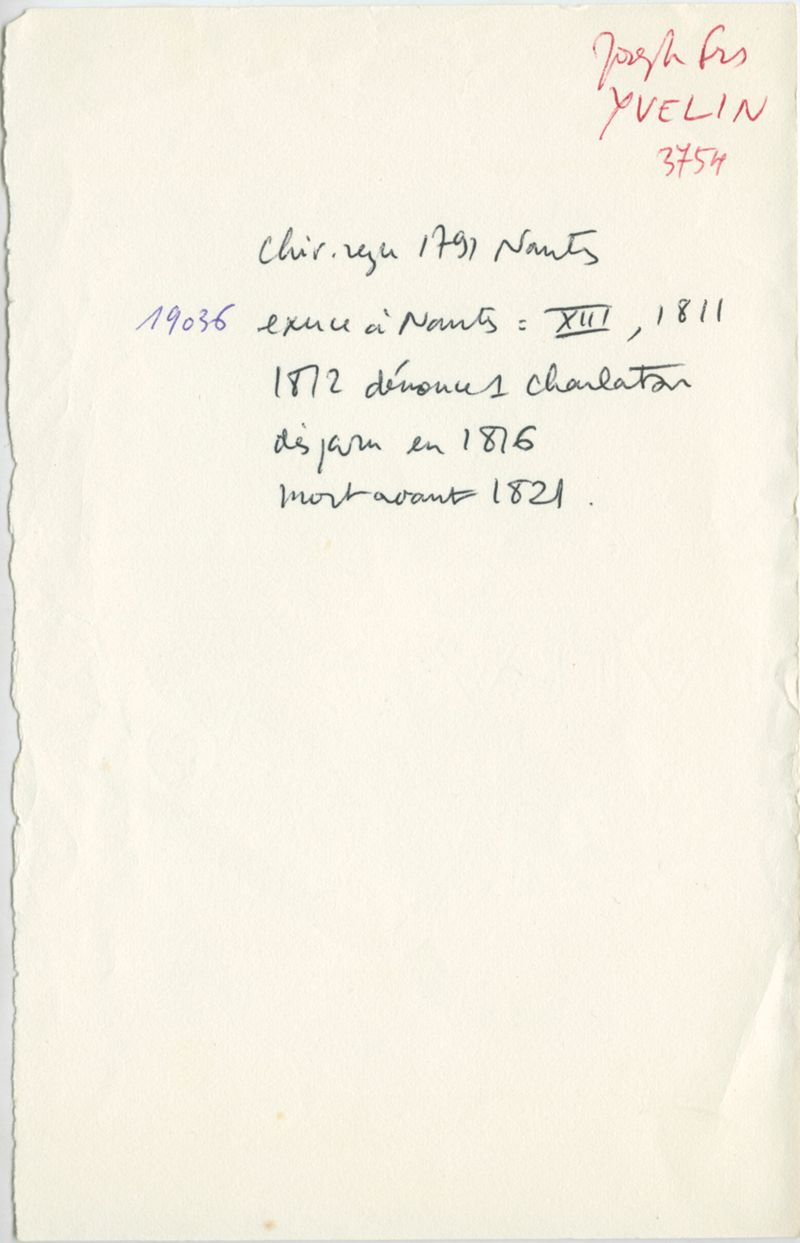 Joseph Frs
YVELIN
3754
Chir. reçu 1791 Nantes
19036 exerce à Nantes : XIII, 1811
1812 dénonce 1 charlatan
disparu en 1816
mort avant 1821.